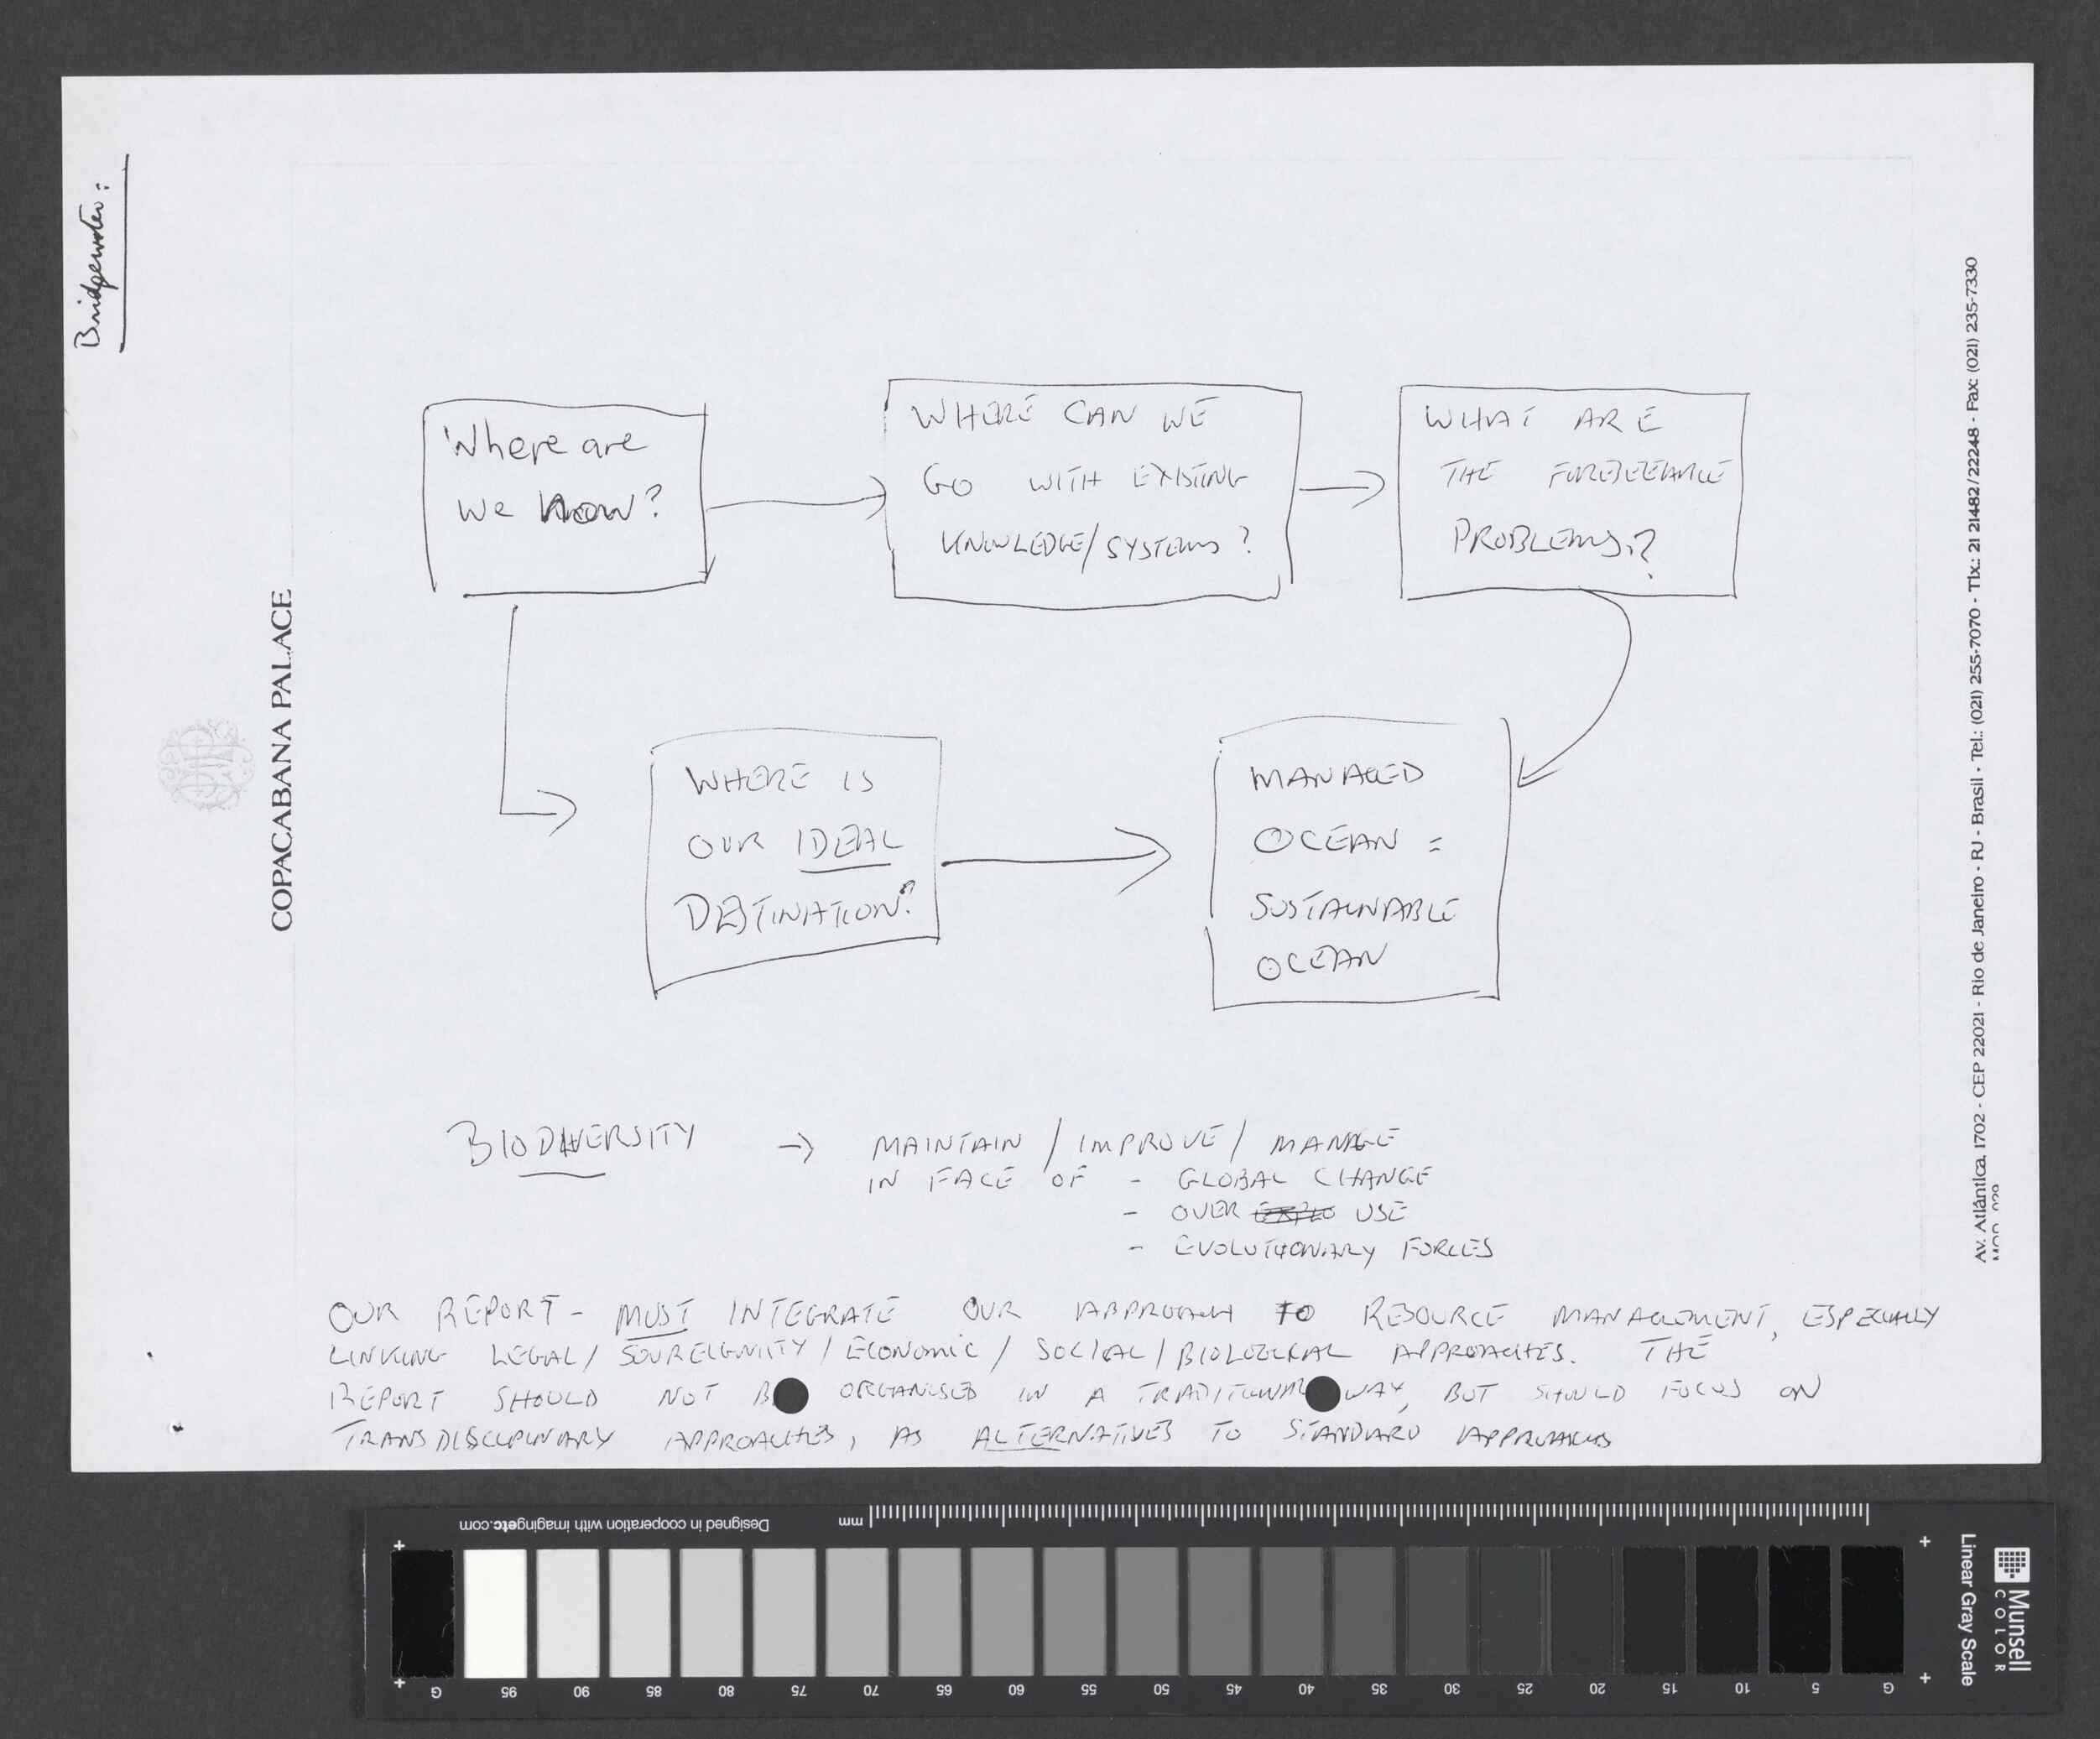 Bridgewater:
COPACABANA PALACE
Where are
we now?
WHERE CAN WE
GO WITH EXISTING
KNOWLEDGE/SYSTEMS?
WHAT ARE
THE FORESEEABLE
PROBLEMS?
WHERE IS
OUR IDEAL
DESTINATION?
MANAGED
OCEAN =
SUSTAINABLE
OCEAN
BIODIVERSITY → MAINTAIN / IMPROVE / MANAGE
IN FACE OF - GLOBAL CHANGE
- OVER USE
- EVOLUTIONARY FORCES
OUR REPORT - MUST INTEGRATE OUR APPROACH TO RESOURCE MANAGEMENT, ESPECIALLY
LINKING LEGAL / SOVREIGNITY / ECONOMIC / SOCIAL / BIOLOGICAL APPROACHES. THE
REPORT SHOULD NOT BE ORGANISED IN A TRADITIONAL WAY, BUT SHOULD FOCUS ON
TRANSDISCIPLINARY APPROACHES, AS ALTERNATIVES TO STANDARD APPROACHES
Av. Atlântica, 1702 - CEP 22021 - Rio de Janeiro - RJ - Brasil - Tel.: (021) 255-7070 - Tlx.: 21 21482/22248 - Fax: (021) 235-7330
Designed in cooperation with imagingetc.com
mm
G 95 90 85 80 75 70 65 60 55 50 45 40 35 30 25 20 15 10 5 G
Linear Gray Scale
Munsell
COLOR